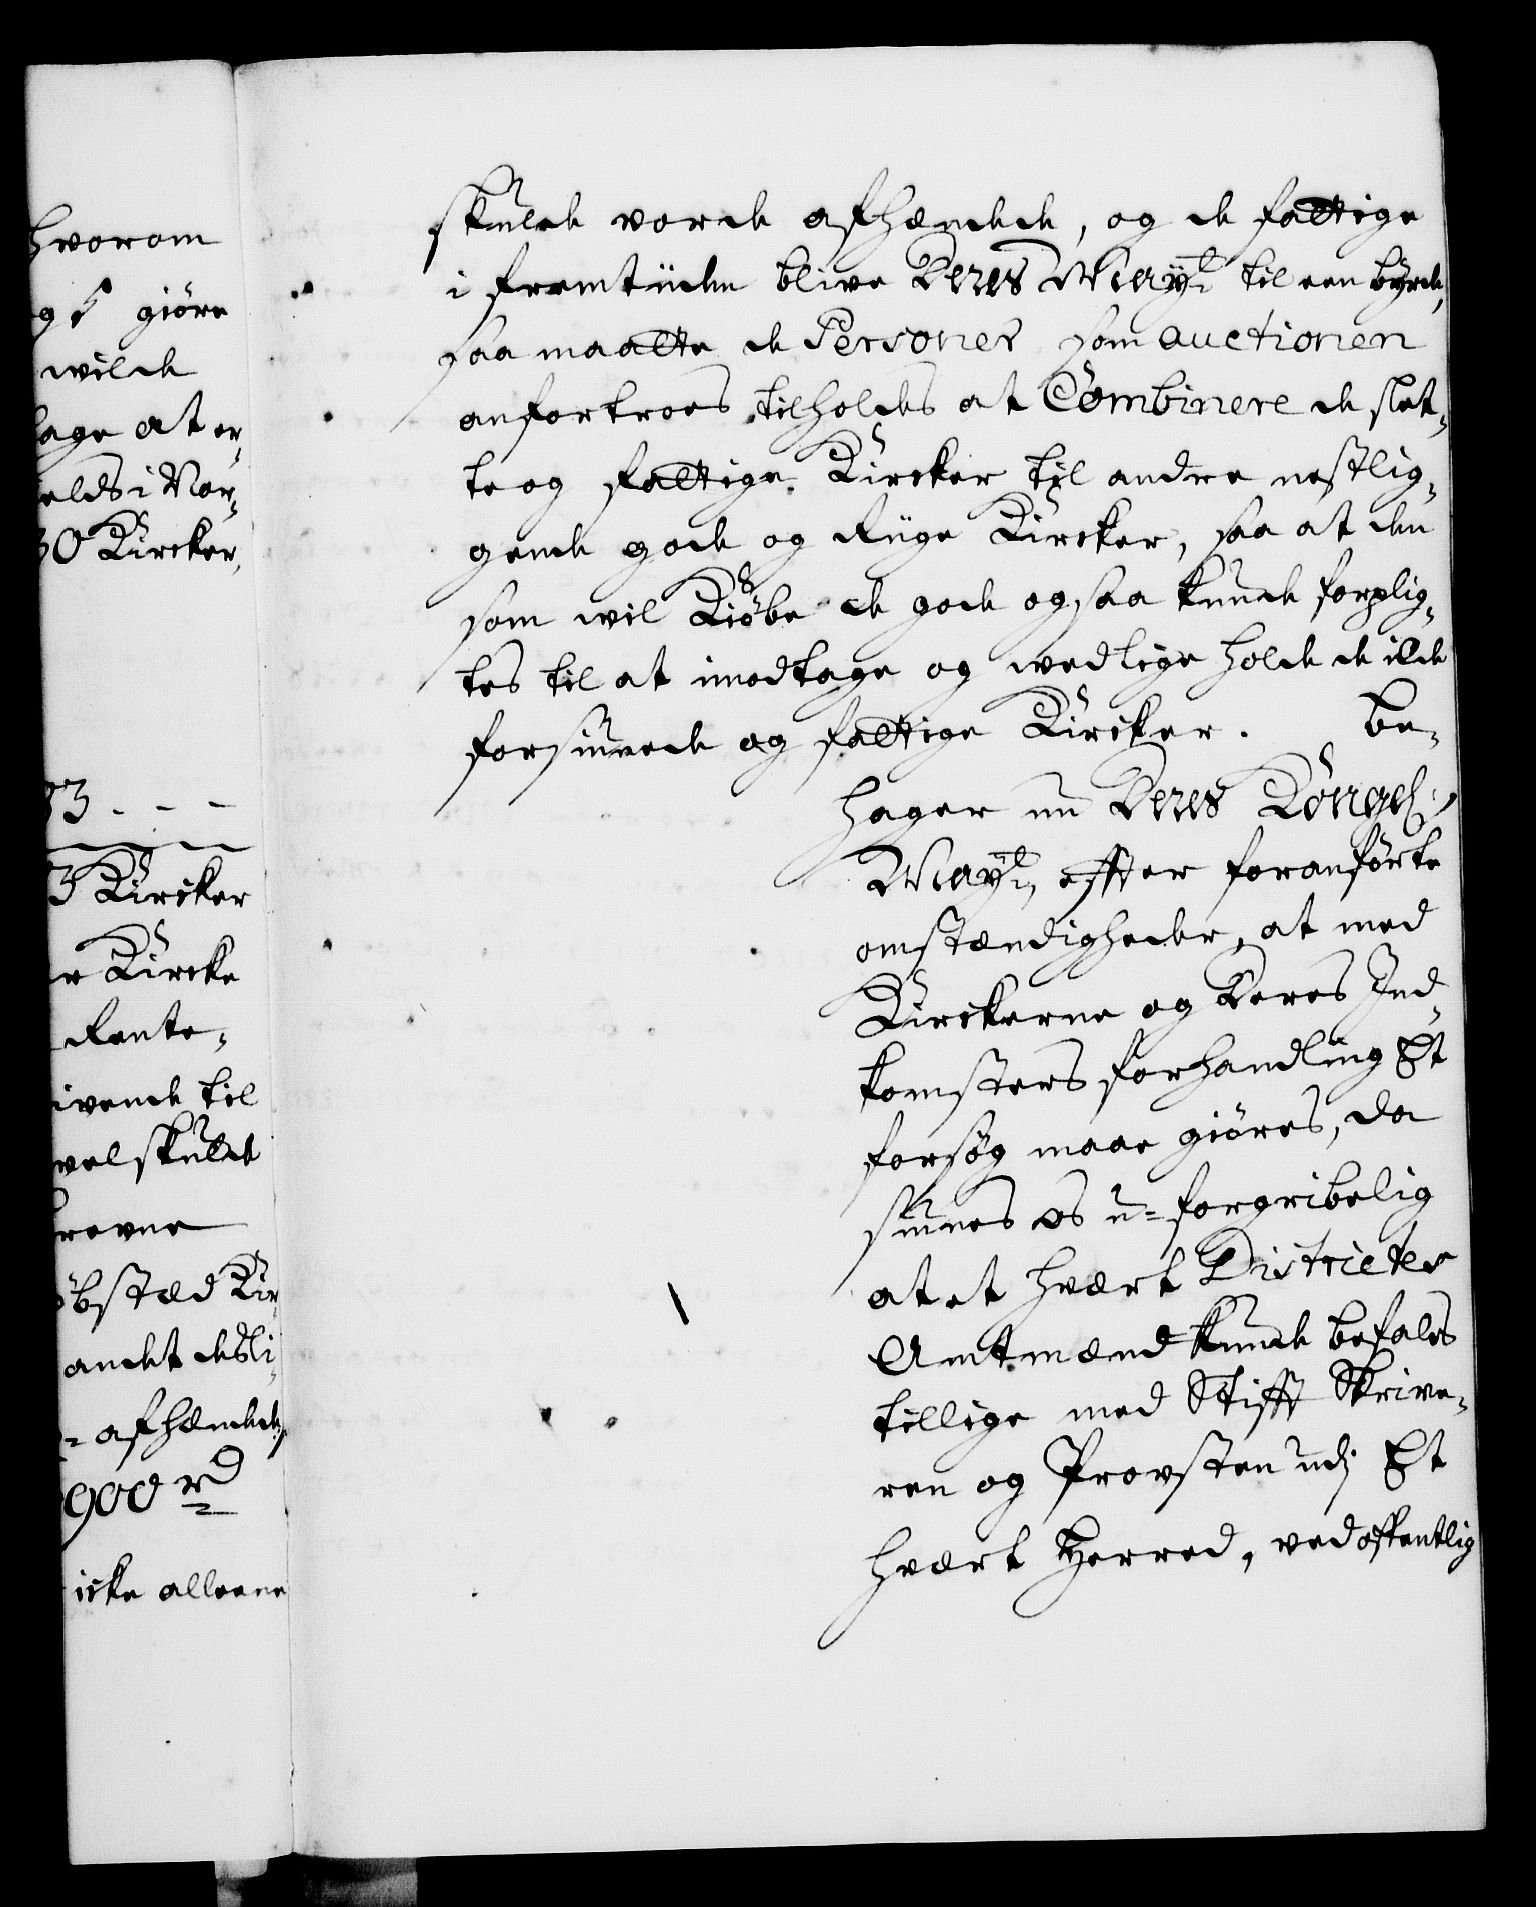 hvorom
giöre
wilde
tage at er,,
elds i Nor,,
30 Kircker,
33 - - -
3 Kircker
r Kircke
Rente,,
ivende til
vel skulde
revne
öbstæd Kir,,
andet desli,,
= afhændede,
900 rd
icke alleene
skulde vorde afhændede, og de fattige
i fremtiiden blive Deres Mayt til een byrde,
saa maatte de Personer som auctionen
anfortroes, tilholdes at Combinere de slet,,
te og fattige Kircker til andre nestlig,,
gende gode og Riige Kircker, saa at den
som wil Kiöbe de gode ogsaa kunde forplig,,
tes til at imodtage og wedlige holde de ilde
forsiunede og fattige Kircker. be,,
hager nu Deres Kongel:
Mayt, effter foranförte
omstændigheder, at med
Kirckerne og deres Ind,,
komsters forhandling Et
forsög maae giöres, da
siunes os u=forgribelig
at et hvært Districtes
Amtmænd kunde befales
tillige med Stifft Skrive,,
ren og Provsten udj Et
hvært Herred, ved offentlig